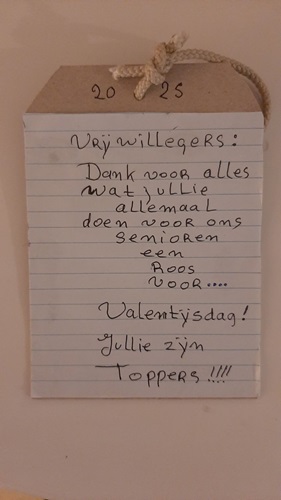 20 25
Vrÿwillegers:
Dank voor alles
wat jullie
allemaal
doen voor ons
senioren
een
Roos
voor....
Valentÿsdag!
Jullie zÿn
Toppers!!!!